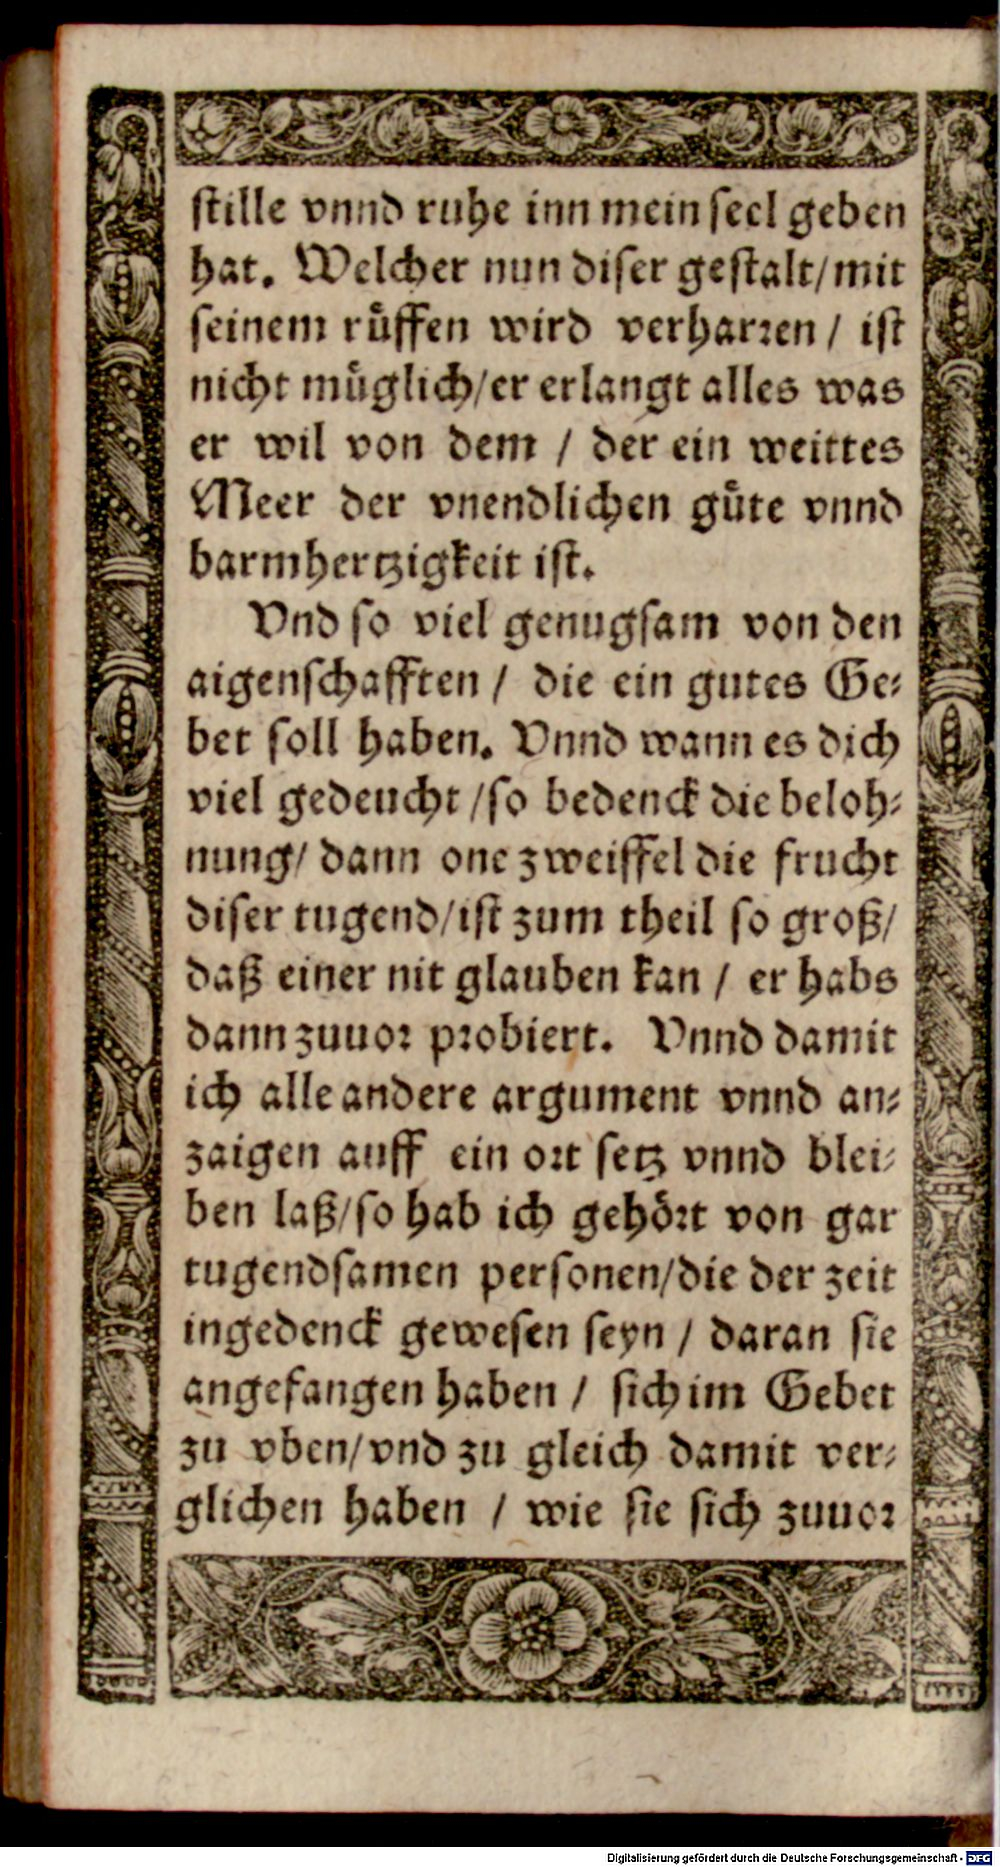 stille vnnd ruhe inn mein seel geben
hat. Welcher nun diser gestalt/mit
seinem růffen wird verharren / ist
nicht můglich/er erlangt alles was
er wil von dem / der ein weittes
Meer der vnendlichen gůte vnnd
barmhertzigkeit ist.
Vnd so viel genugsam von den
aigenschafften / die ein gutes Ge-
bet soll haben. Vnnd wann es dich
viel gedeucht /so bedenck die beloh-
nung/ dann one zweiffel die frucht
diser tugend/ist zum theil so groß/
daß einer nit glauben kan / er habs
dann zuuor probiert. Vnnd damit
ich alle andere argument vnnd an-
zaigen auff ein ort setz vnnd blei-
ben laß/so hab ich gehoͤrt von gar
tugendsamen personen/die der zeit
ingedenck gewesen seyn / daran sie
angefangen haben / sich im Gebet
zu vben/vnd zu gleich damit ver-
glichen haben / wie sie sich zuuor
Digitalisierung gefördert durch die Deutsche Forschungsgemeinschaft - DFG